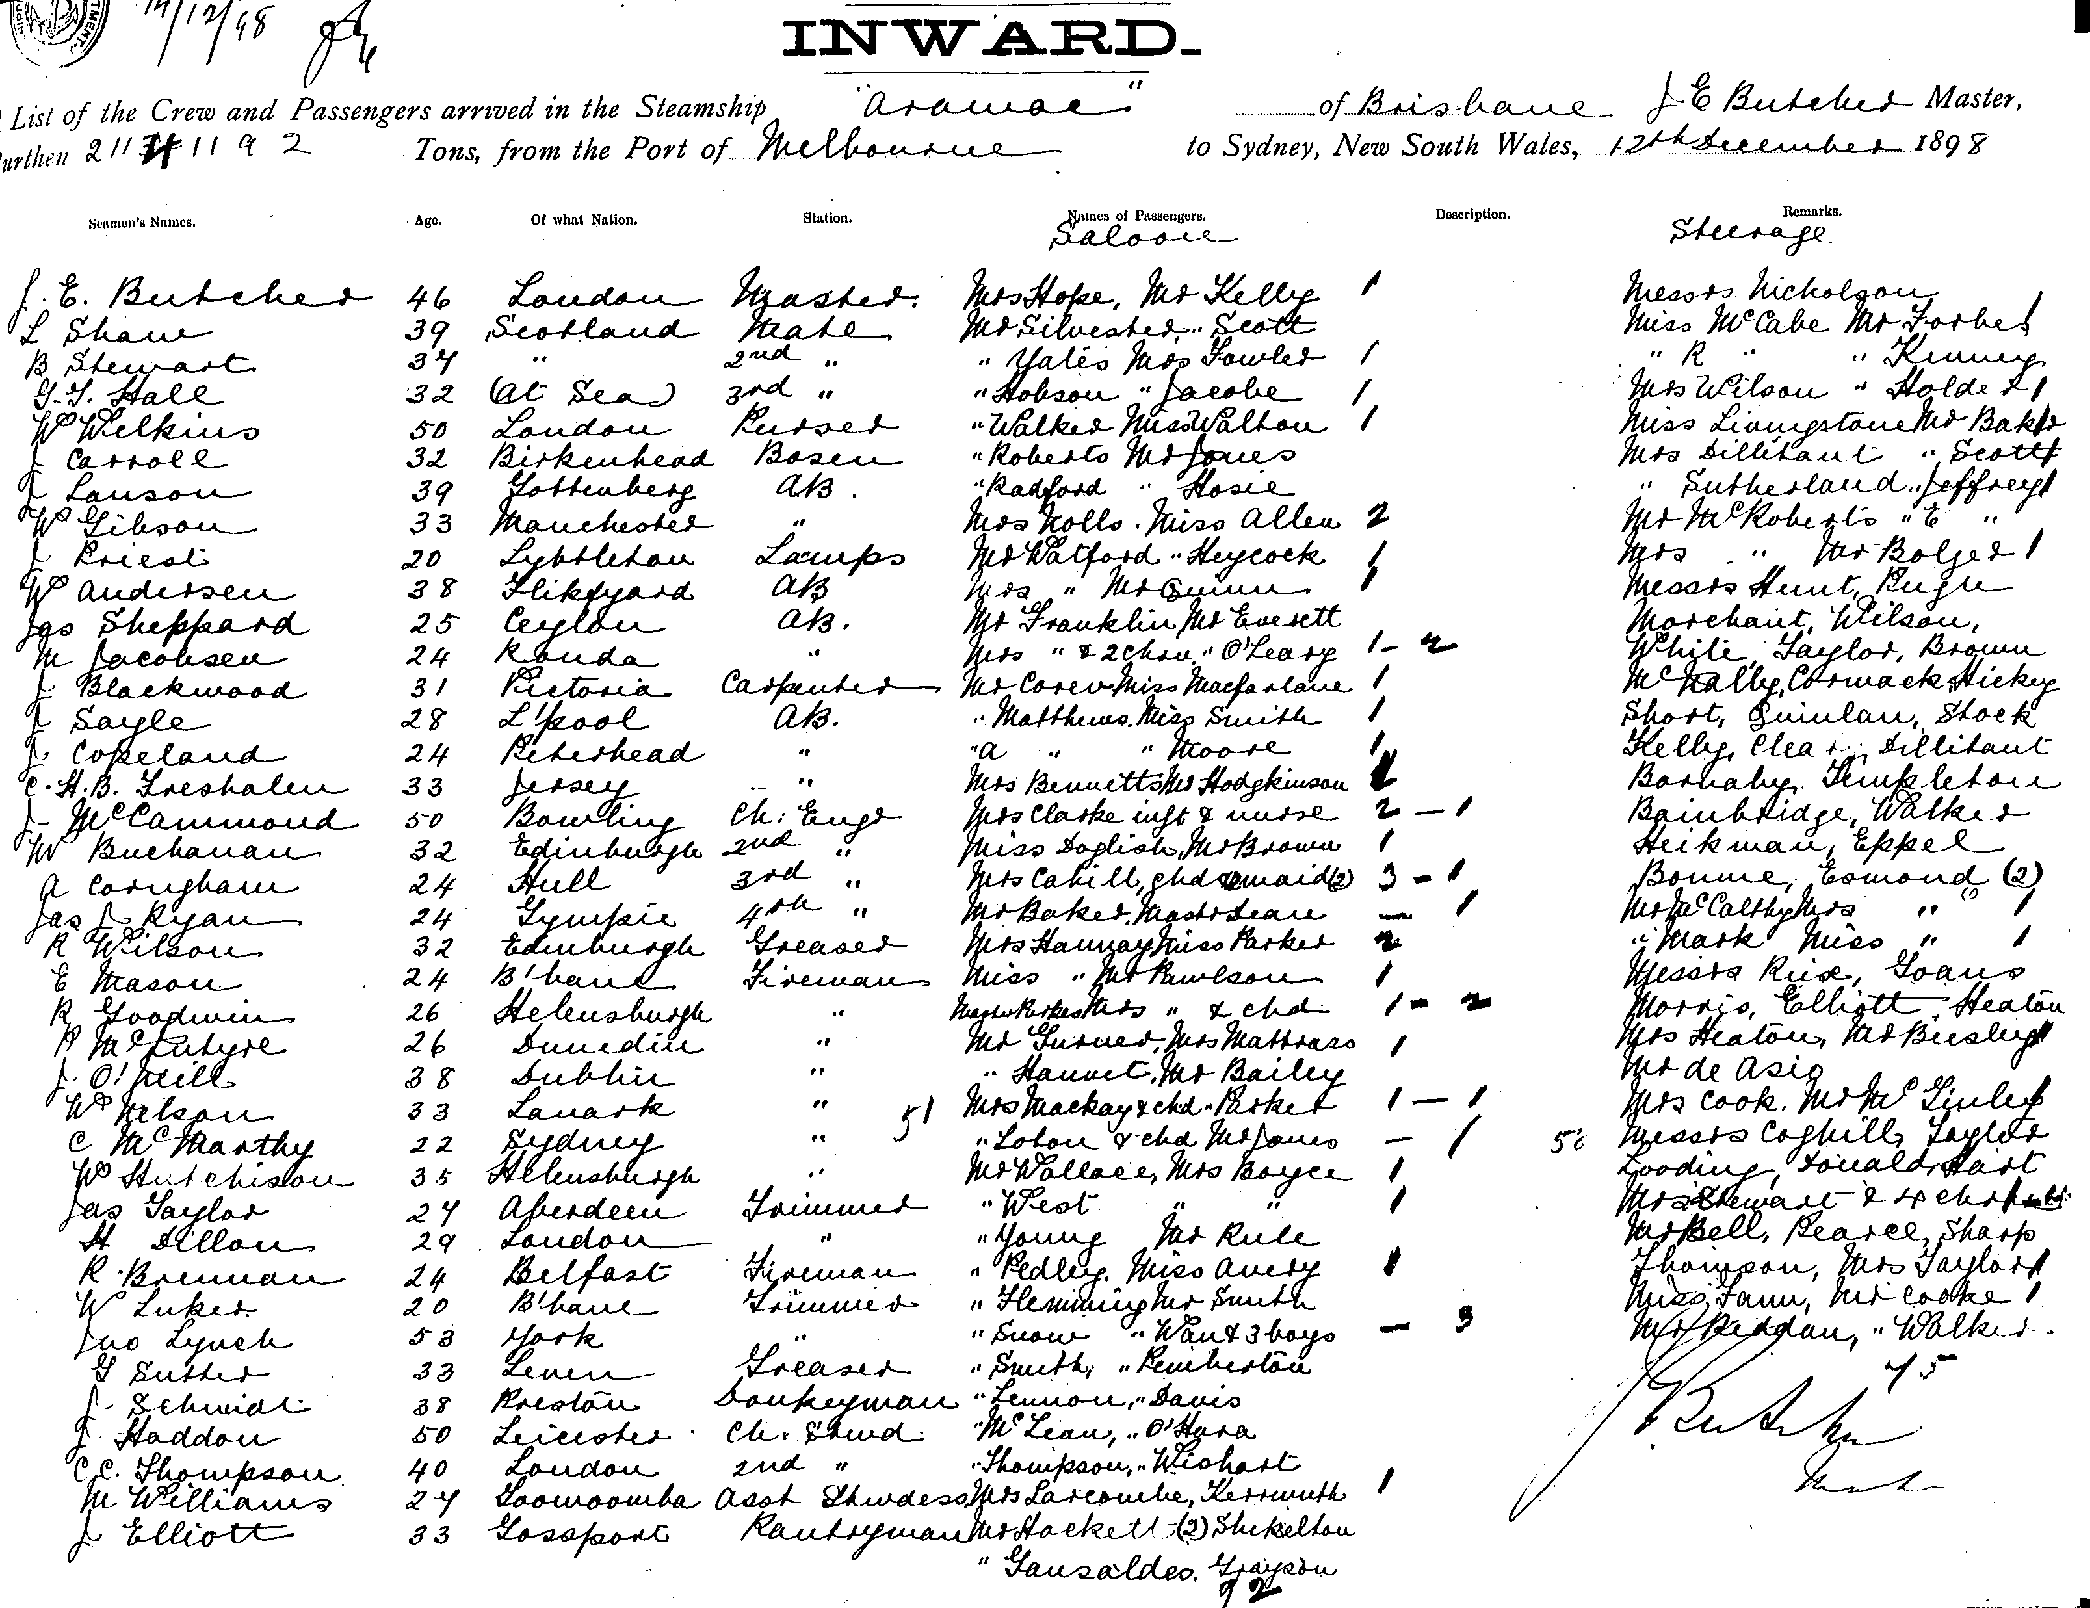 14/12/98
INWARD.
List of the Crew and Passengers arrived in the Steamship "Aramac" of Brisbane J E Butcher Master,
Burthen 2114 1192 Tons, from the Port of Melbourne to Sydney, New South Wales, 12th December 1898
Seamen's Names. Age. Of what Nation. Station. Names of Passengers. Description. Remarks.
Saloon Steerage
J. E. Butcher 46 London Master. Mrs Hope, Mr Kelly 1 Messrs Nicholson
L Shaw 39 Scotland Mate Mr Silvester, " Scott Miss McCabe Mr Forbes 1
B Stewart 37 " 2nd " " Yates Mrs Fowler 1 " R " " Kenney
G. T. Hall 32 (At Sea) 3rd " " Hobson " Jacobe 1 Mrs Wilson " Holder 1
W Wilkins 50 London Purser " Walker Miss Walton 1 Miss Livingstone Mr Baker
J Carroll 32 Birkenhead Bosen " Roberts Mr Jones Mrs Dillitant " Scott 1
J Lauson 39 Gottenberg AB. " Radford " Hosie " Sutherland " Jeffrey 1
W Gibson 33 Manchester " Mrs Nolls. Miss Allen 2 Mr McRoberts " E "
J Priest 20 Lyttleton Lamps Mr Watford " Heycock 1 Mrs " Mr Bolger 1
W Andersen 38 AB Mrs " Mr Quinn 1 Messrs Hunt, Pugh
Jas Sheppard 25 Ceylon AB. Mr Franklin, Mr Everett Marchant, Wilson,
M Jacobsen 24 Randa " Mrs " & 2 chrn, " O'Leary 1 - 2 White, Taylor, Brown
J Blackwood 31 Pictoria Carpenter Mr Coren Miss Macfarlane 1 McNally, Cormack, Hickey
J Sayle 28 L'pool AB. " Matthews. Miss Smith 1 Short, Quinlan, Stock
J. Copeland 24 Peterhead " " A " " Moore 1 Kelly, Clear, Dillitant
C. H. B. Freshalen 33 Jersey " Mrs Bennetts Mr Hodgkinson 1 Barnaby, Templeton
J. McCammond 50 Bowling Ch: Engr Mrs Clarke inft & nurse 2 - 1 Bainbridge, Walker
W Buchanan 32 Edinburgh 2nd " Miss Doglish, Mr Brown 1 Heikman, Eppel
A Cornigham 24 Hull 3rd " Mrs Cahill, chd & maid (2) 3 - 1 Bonnie, Esmond (2)
Jas J Ryan 24 Gympie 4th " Mr Baker, Mastr Dean - 1 Mr McCalthy Mrs " 1
R Wilson 32 Edinburgh Greaser Mrs Hannay Miss Parker 2 " Mark Miss " 1
E Mason 24 B'bane Fireman Miss " Mr Pawlson 1 Messrs Rix, Goans
R Goodwin 26 Helensburgh " Mastr Parkes Mrs " & chd 1 - 2 Morris, Elliott, Heaton
P McIntyre 26 Dunedin " Mr Turner, Mrs Mattrass 1 Mrs Heaton, Mr Busley 1
J. O'Neill 38 Dublin " " Hannet, Mr Bailey Mr de Asig
W Nelson 33 Lanark " 51 Mrs Mackay & chd " Parker 1 - 1 Mrs Cook. Mr McGinley
C McMarthy 22 Sydney " " Loton & chd Mr Jones - 1 50 Messrs Coghill, Taylor
W Hutchison 35 Helensburgh " Mr Wallace, Mrs Boyce 1 Looding, Donald, Hart
Jas Taylor 27 Aberdeen Trimmer " West " " 1 Mrs Stewart & 4 chr
H Dillon 29 London " " Young Mr Rule Mr Bell, Pearce, Sharp
R. Brennan 24 Belfast Fireman " Pedley. Miss Avery 1 Thompson, Mrs Taylor 1
W Luker 20 B'bane Trimmer " Flemming Mr Smith Miss Fann, Mr Cooke 1
Jno Lynch 53 York " " Snow " Wan & 3 boys - 3 Mr Reddan, " Walker.
G Sutter 33 Leven Greaser " Smith, " Pemberton 75
J. Schmidt 38 Preston Donkeyman " Lennon, " Davis
J. Haddon 50 Leicester Ch. Stwd. " McLean, " O'Hara Butcher
C.C. Thompson 40 London 2nd " " Thompson, " Wishart
M Williams 27 Toomoomba Asst Stwdess Mrs Larcombe, Kermuth 1
J Elliott 33 Gossport Pantryman Mr Hackett (2) Shekelton
" Gansaldes. Grayson
92